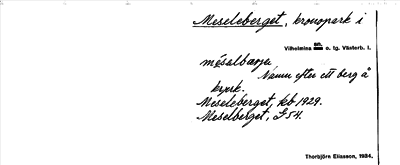 Meseleberget, kronopark i
Vilhelmina sn. o. tg. Västerb. l.
méselbarje.
Namn efter ett berg å
kpark.
Meseleberget, kb 1929.
Meselberget, S 54.
Thorbjörn Eliasson, 1934.